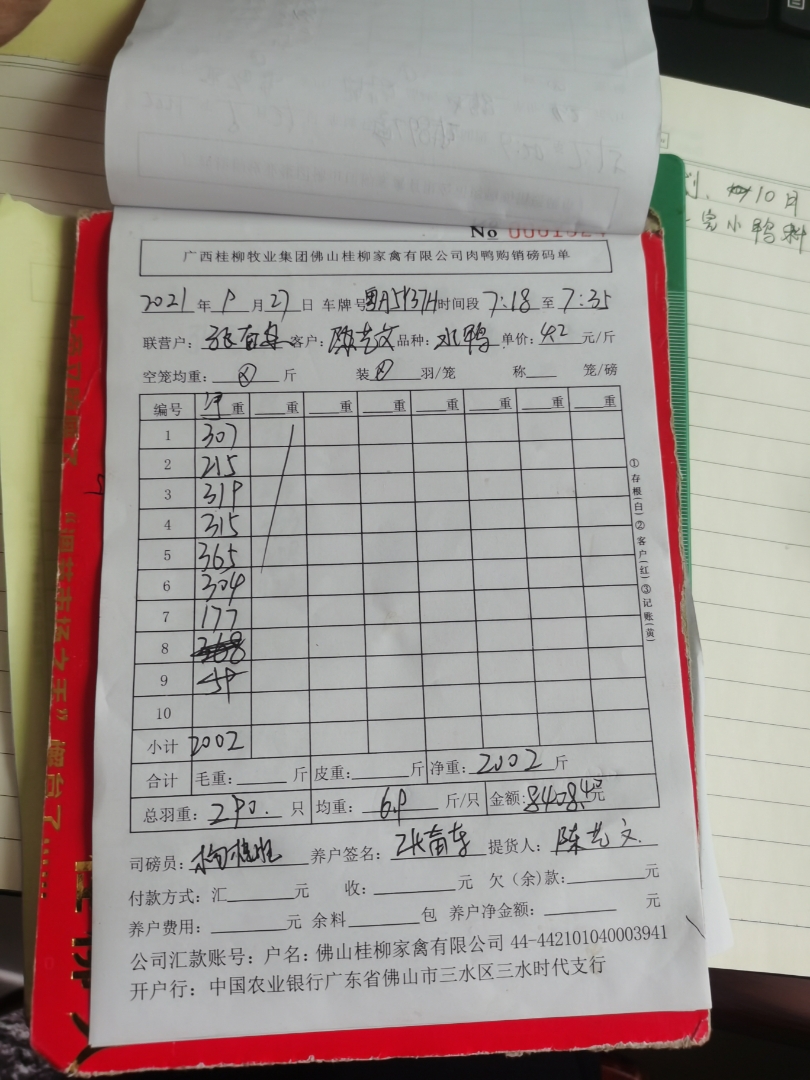 No 0001924
广西桂柳牧业集团佛山桂柳家禽有限公司肉鸭购销磅码单
2021年9月27日 车牌号 时间段 7:18 至 7:35
联营户: 客户: 陈艺文 品种: 水鸭 单价: 4.2 元/斤
空笼均重: 斤 装 羽/笼 称 笼/磅
编号 净重 重 重 重 重 重 重 重
1 307
2 215
3 319
4 315
5 365
6 304
7 177
8
9
10
小计 2002
合计 毛重: 斤 皮重: 斤 净重: 2002 斤
总羽重: 290. 只 均重: 6.9 斤/只 金额: 8408.4元
司磅员: 养户签名: 提货人: 陈艺文
付款方式: 汇 元 收: 元 欠(余)款: 元
养户费用: 元 余料 包 养户净金额: 元
公司汇款账号: 户名: 佛山桂柳家禽有限公司 44-442101040003941
开户行: 中国农业银行广东省佛山市三水区三水时代支行
①存根(白)②客户(红)③记账(黄)
10日
完小鸭料